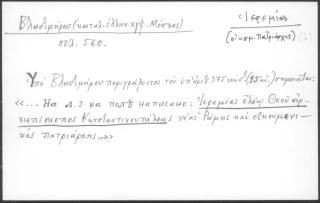 Βλαδιμήρου (καταλ. ἑλλην. χφ. Μόσχας)
σελ. 560.
Ἱερεμίας
(οἰκουμ. Πατριάρχης)
Ὑπὸ Βλαδιμήρου περιγράφοντος τὸν ὑπ' ἀριθ. 375 κώδ. (15 αἰ.) σημειοῦται:
«... На л. 3 на полѣ написано: Ἱερεμίας ἐλέῳ Θεοῦ ἀρ-
χιεπίσκοπος Κωνσταντινουπόλεως νέας Ῥώμης καὶ οἰκουμενι-
κὸς πατριάρχης...»